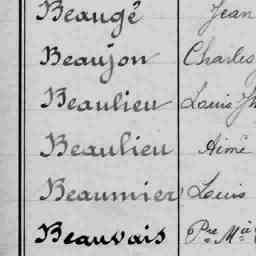 Beaugé Jean
Beaujon Charles
Beaulieu Louis
Beaulieu Aimé
Beaumier Louis
Beauvais Pre Mie